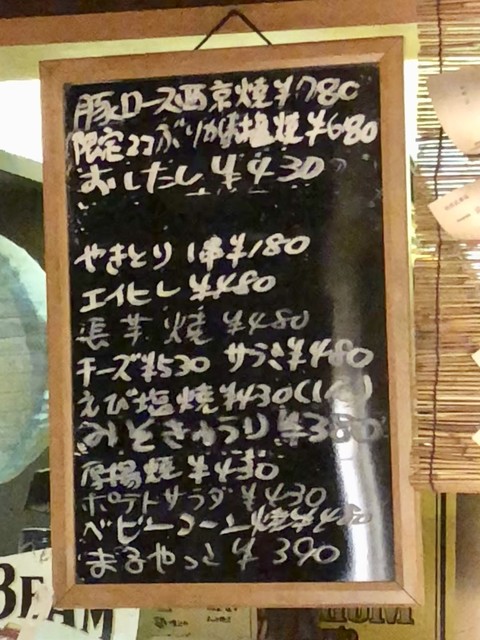 豚ロース西京焼¥780
限定22ぶりかま塩焼¥680
おしたし ¥430
やきとり 1串¥180
エイヒレ ¥480
長芋焼 ¥480
チーズ¥530 サラミ¥480
えび塩焼¥430
みそきゅうり ¥380
厚揚焼 ¥430
ポテトサラダ ¥430
ベビーコーン焼¥480
まるやっこ ¥390
BEAM